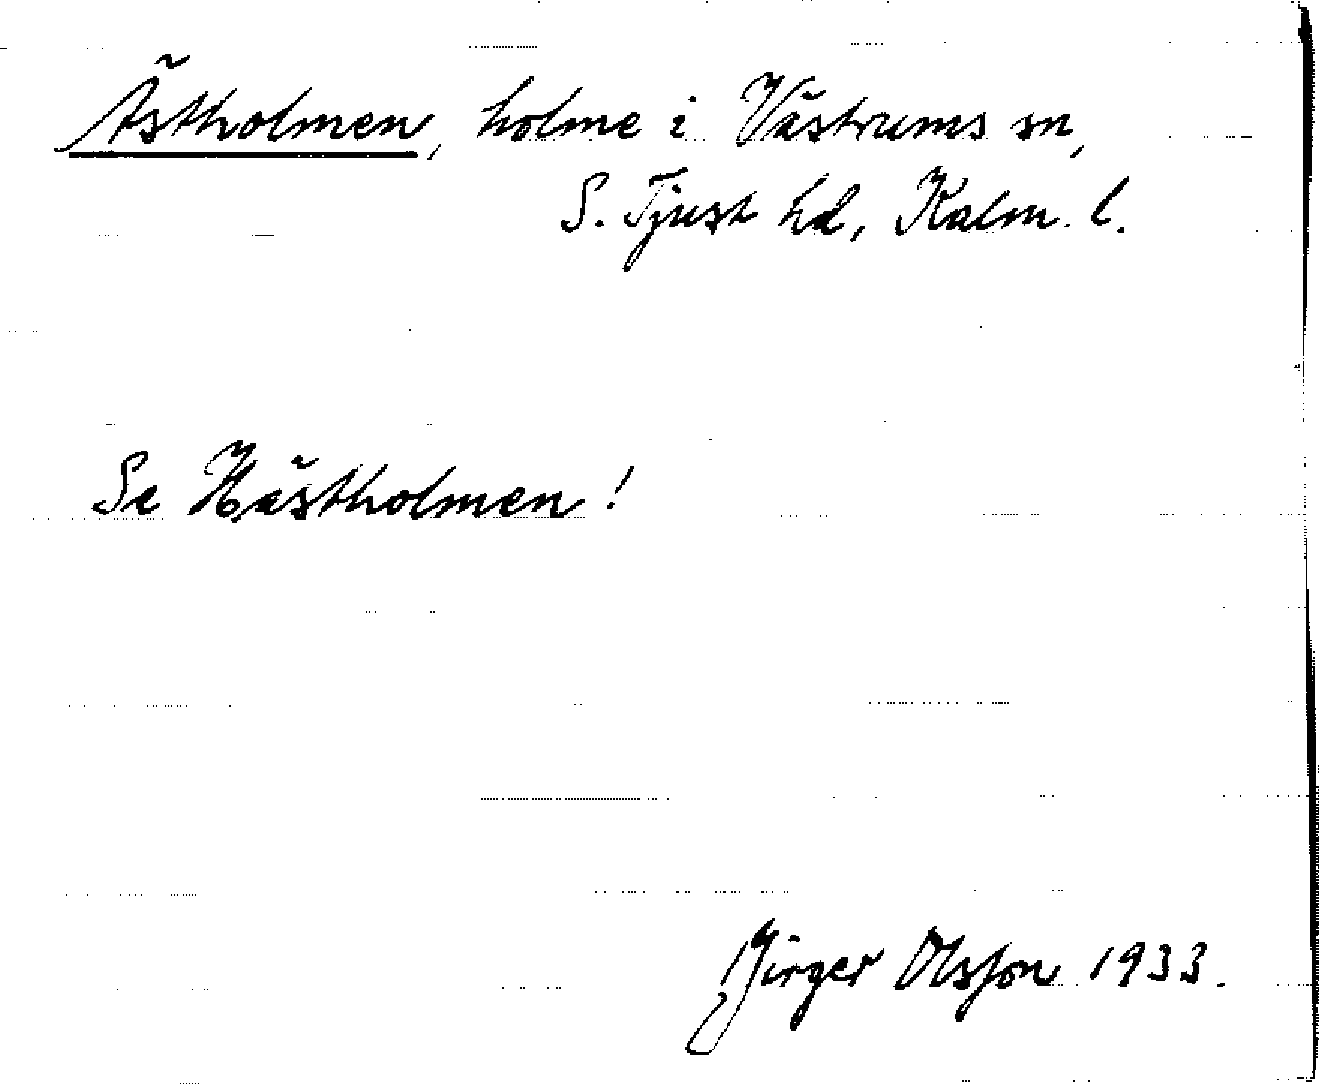 Ästholmen, holme i Västrums sn,
S. Tjust hd, Kalm. l.
Se Hästholmen!
Birger Olsson 1933.